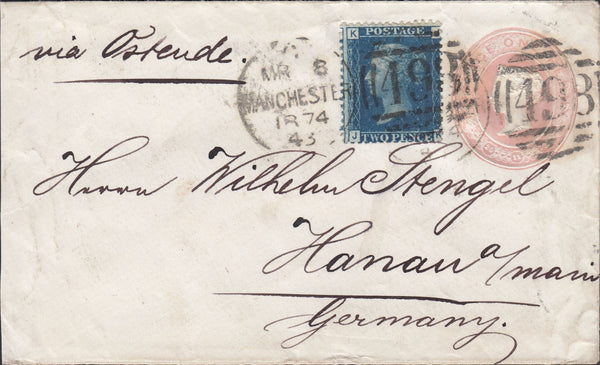 via Ostende.
MR 8
MANCHESTER
1874
43
K
POSTAGE
J
TWO PENCE
K
498
498
Herrn Wilhelm Stengel
Hanau a/main
Germany.